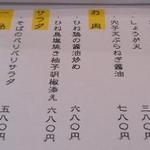 しょうが天 三八〇円
穴子天ぷらねぎ醤油 七八〇円
お肉
ひね鶏の醤油炒め 六八〇円
ひね鳥塩焼き柚子胡椒添え 六八〇円
サラダ
そばのパリパリサラダ 五八〇円